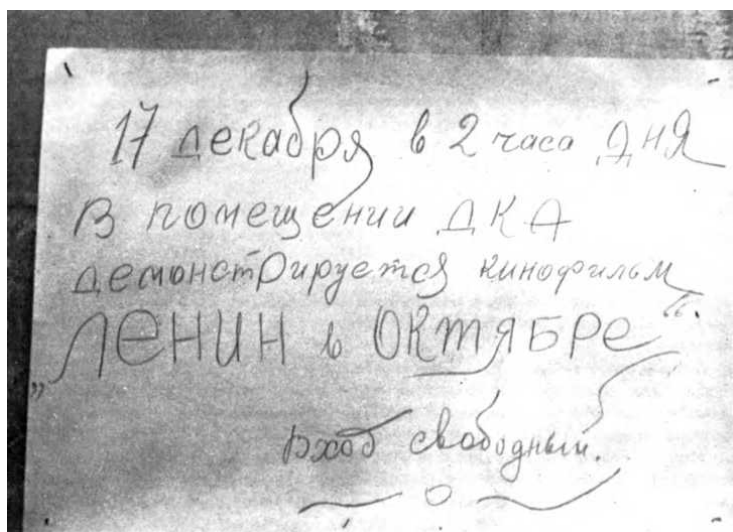 17 декабря в 2 часа дня
В помещении ДКА
демонстрируется кинофильм
„ЛЕНИН в ОКТЯБРЕ“.
Вход свободный.